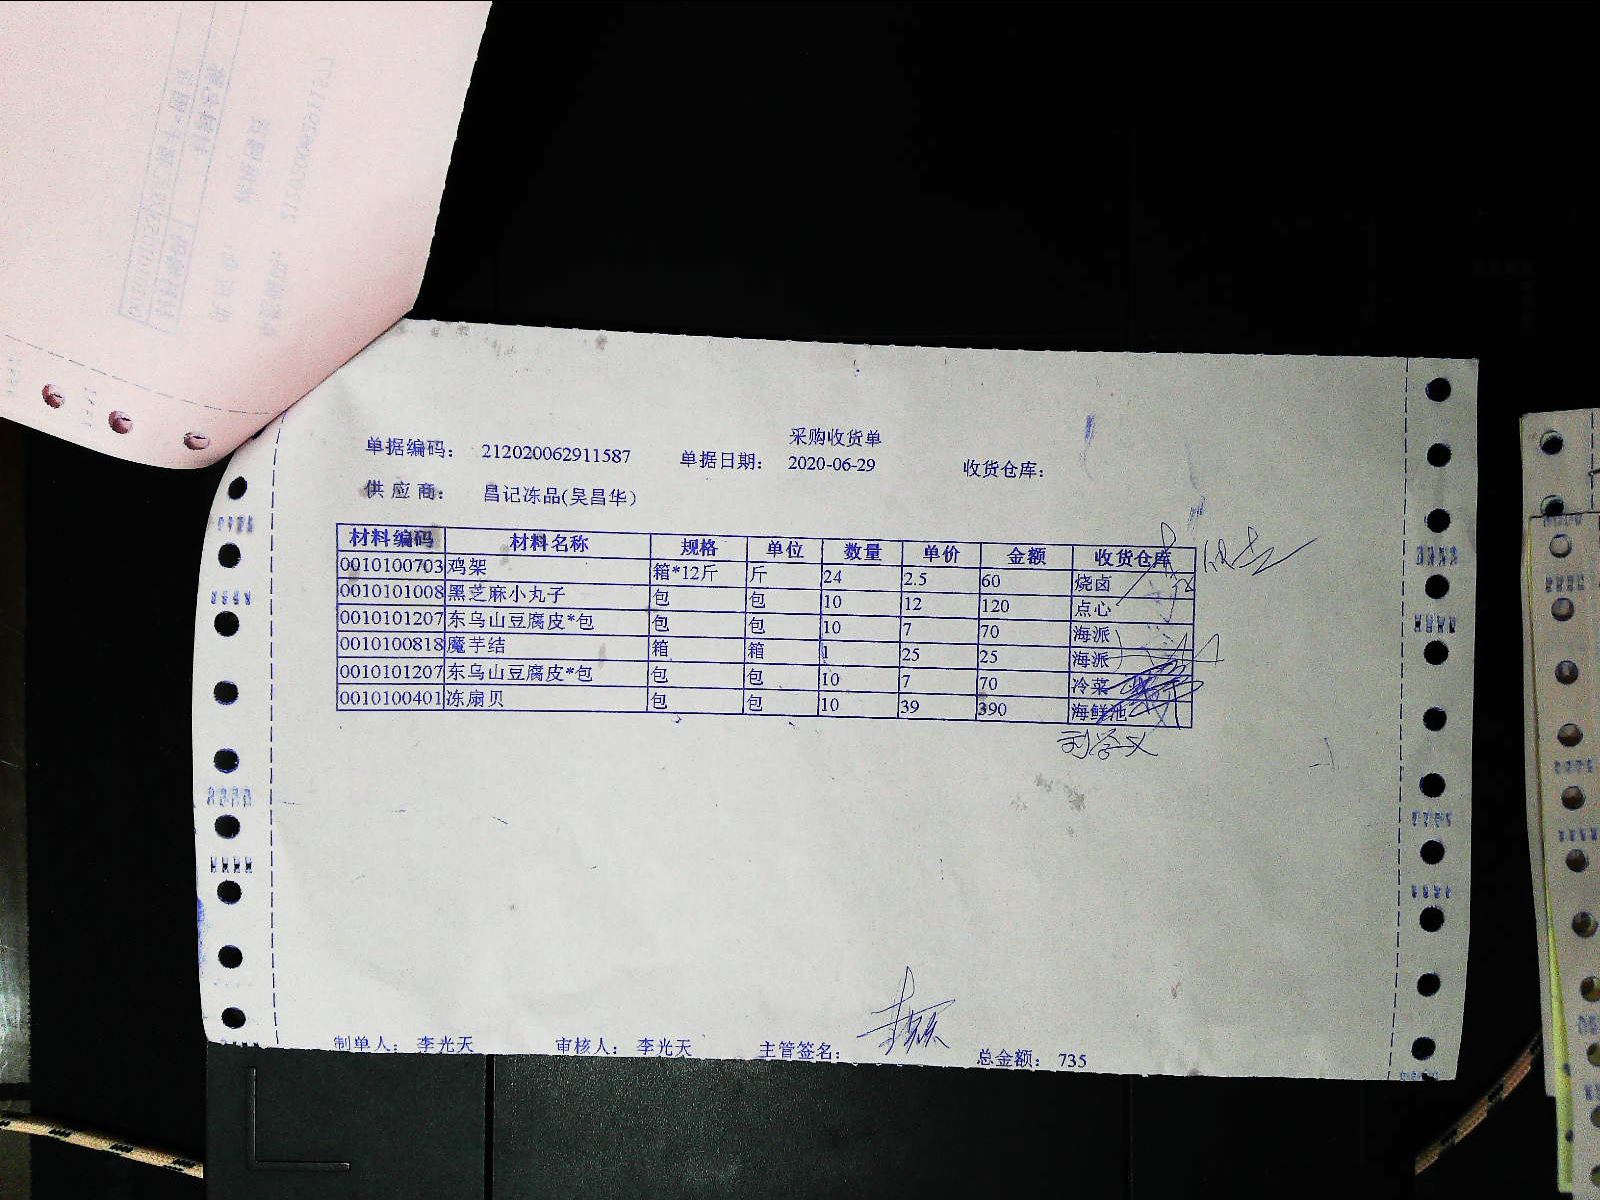 采购收货单
单据编码： 212020062911587 单据日期： 2020-06-29 收货仓库：
供 应 商： 昌记冻品(吴昌华)
材料编码 材料名称 规格 单位 数量 单价 金额 收货仓库
0010100703 鸡架 箱*12斤 斤 24 2.5 60 烧卤
0010101008 黑芝麻小丸子 包 包 10 12 120 点心
0010101207 东乌山豆腐皮*包 包 包 10 7 70 海派
0010100818 魔芋结 箱 箱 1 25 25 海派
0010101207 东乌山豆腐皮*包 包 包 10 7 70 冷菜
0010100401 冻扇贝 包 包 10 39 390 海鲜池
刘学义
制单人： 李光天 审核人： 李光天 主管签名： 总金额： 735